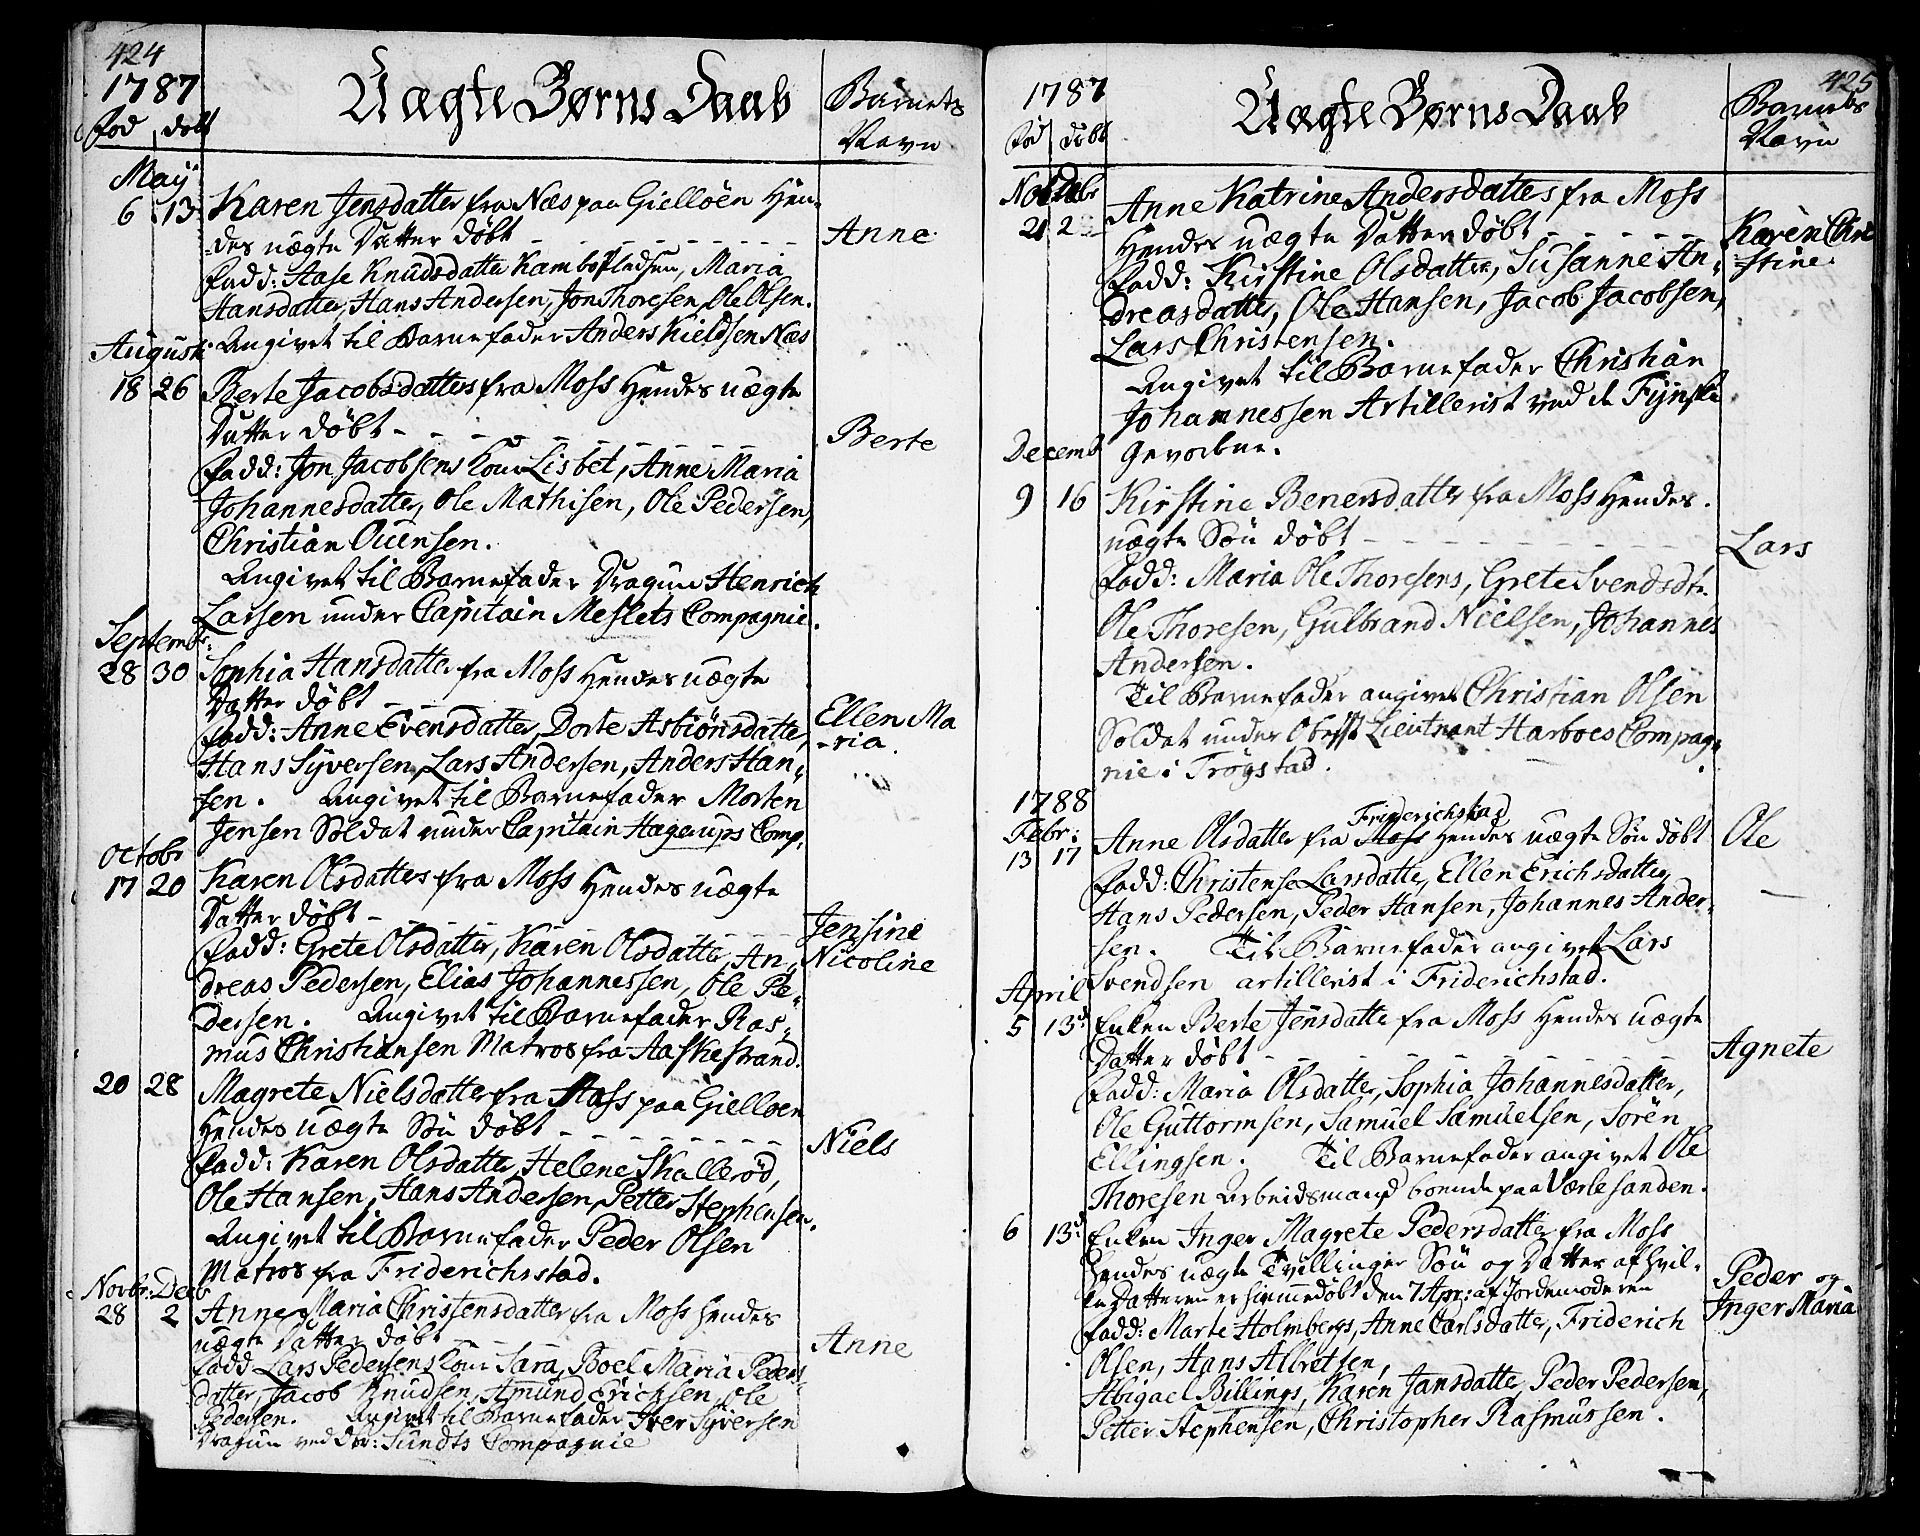 424
1787
Uægte Børns Daab
Barnets
Fød døbt
Navn
May
6 13 Karen Jensdatter fra Næs paa Gielløen Hen-
-des uægte Datter døbt - - - - - Anne
Fadd: Aase Knudsdatter Maria
Hansdatter, Hans Andersen, Jon Thoresen, Ole Olsen.
Angivet til Barnefader Anders Kieldsen Næs
August:
18 26 Berte Jacobsdatter fra Moss Hendes uægte
Datter døbt - - - - Berte
Fadd: Jon Jacobsens Kone Lisbet, Anne Maria
Johannesdatter, Ole Mathisen, Ole Pedersen,
Christian Ouensen.
Angivet til Barnefader Dragun Henrich
Larsen under Capitain Meslets Compagnie.
Septembr:
28 30 Sophia Hansdatter fra Moss Hendes uægte
Datter døbt - - Ellen Ma
-ria.
Fadd: Anne Evensdatter, Dorte Asbiönsdatter,
Hans Syversen, Lars Andersen, Anders Han-
sen. Angivet til Barnefader Morten
Jensen Soldat under Capitain Hagerups Comp.
Octobr
17 20 Karen Olsdatter fra Moss Hendes uægte
Datter døbt - - - Jensine
Nicoline
Fadd: Grete Olsdatter, Karen Olsdatter, An-
dreas Pedersen, Elias Johannessen, Ole Pe-
dersen. Angivet til Barnefader Ras-
mus Christiansen Matros fra Aaskestrand.
20 28 Magrete Nielsdatter fra Moss paa Gielløen
Hendes uægte Søn døbt - - - - - Niels
Fadd: Karen Olsdatter, Helene Skallerød,
Ole Hansen, Hans Andersen, Petter Stephensen.
Angivet til Barnefader Peder Olsen
Matros fra Friderichsstad.
Novbr: Decb
28 2 Anne Maria Christensdatter fra Moss Hendes
uægte Datter døbt - - - Anne
Fadd Lars Pedersens Kone Sara, Boel Maria Peders-
datter, Jacob Knudsen, Amund Erichsen, Ole
Pedersen. Angivet til Barnefader Iver Syversen
Dragun ved Sundts Compagnie
425
1787
Uægte Børns Daab
Barnets
Fød døbt
Navn
Anne Katrine Andersdatter fra Moss
21 2 Hendes uægte Datter døbt - - - - - Karen Chri
-stine.
Fadd: Kirstine Olsdatter, Susanne An-
dreasdatter, Ole Hansen, Jacob Jacobsen,
Lars Christensen.
Angivet til Barnefader Christian
Johannessen Artillerist ved de Fynske
Gevorbne.
Decemb
9 16 Kirstine Benersdatter fra Moss Hendes
uægte Søn døbt - - - - - Lars
Fadd: Maria Ole Thoresens, Grete Svendsdtr
Ole Thoresen, Gulbrand Nielsen, Johannes
Andersen.
Til Barnefader angivet Christian Olsen
Soldat under Oberst Lieutnant Harboes Compag-
nie i Trøgstad.
1788
Febr:
Friderichstad
13 17 Anne Olsdatter fra Moss Hendes uægte Søn døbt Ole
Fadd: Christense Larsdatter, Ellen Erichsdatter,
Hans Pedersen, Peder Hansen, Johannes Ander-
sen. Til Barnefader angivet Lars
Svendsen artillerist i Friderichstad.
April
5 13d Enken Berte Jensdatter fra Moss Hendes uægte
Datter døbt - - - - - Agnete
Fadd: Maria Olsdatter, Sophia Johannesdatter,
Ole Guttormsen, Samuel Samuelsen, Sören
Ellingsen. Til Barnefader angivet Ole
Thoresen Arbeidsmand boende paa Værlesanden.
6 13d Enken Inger Magrete Pedersdatter fra Moss
Hendes uægte Tvillinger Søn og Datter af hvil-
ke Datteren er hiemmedøbt den 7 Apr: af Jordemoderen
Peder og
Inger Maria
Fadd: Marte Holmbergs, Anne Carlsdatter, Friderich
Olsen, Hans Albretsen,
Abigael Billings, Karen Jansdatter, Peder Pedersen,
Petter Stephensen, Christopher Rasmussen.